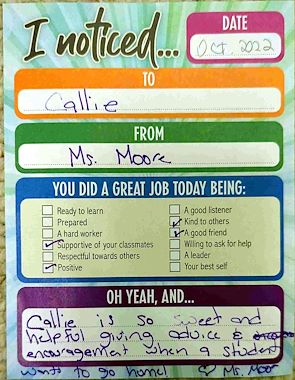 I noticed...
DATE
Oct. 2022
TO
Callie
FROM
Ms. Moore
YOU DID A GREAT JOB TODAY BEING:
Ready to learn
Prepared
A hard worker
Supportive of your classmates
Respectful towards others
Positive
A good listener
Kind to others
A good friend
Willing to ask for help
A leader
Your best self
OH YEAH, AND...
Callie is so sweet and
helpful giving advice &
encouragement when a student
wants to go home! ♡ Ms. Moore